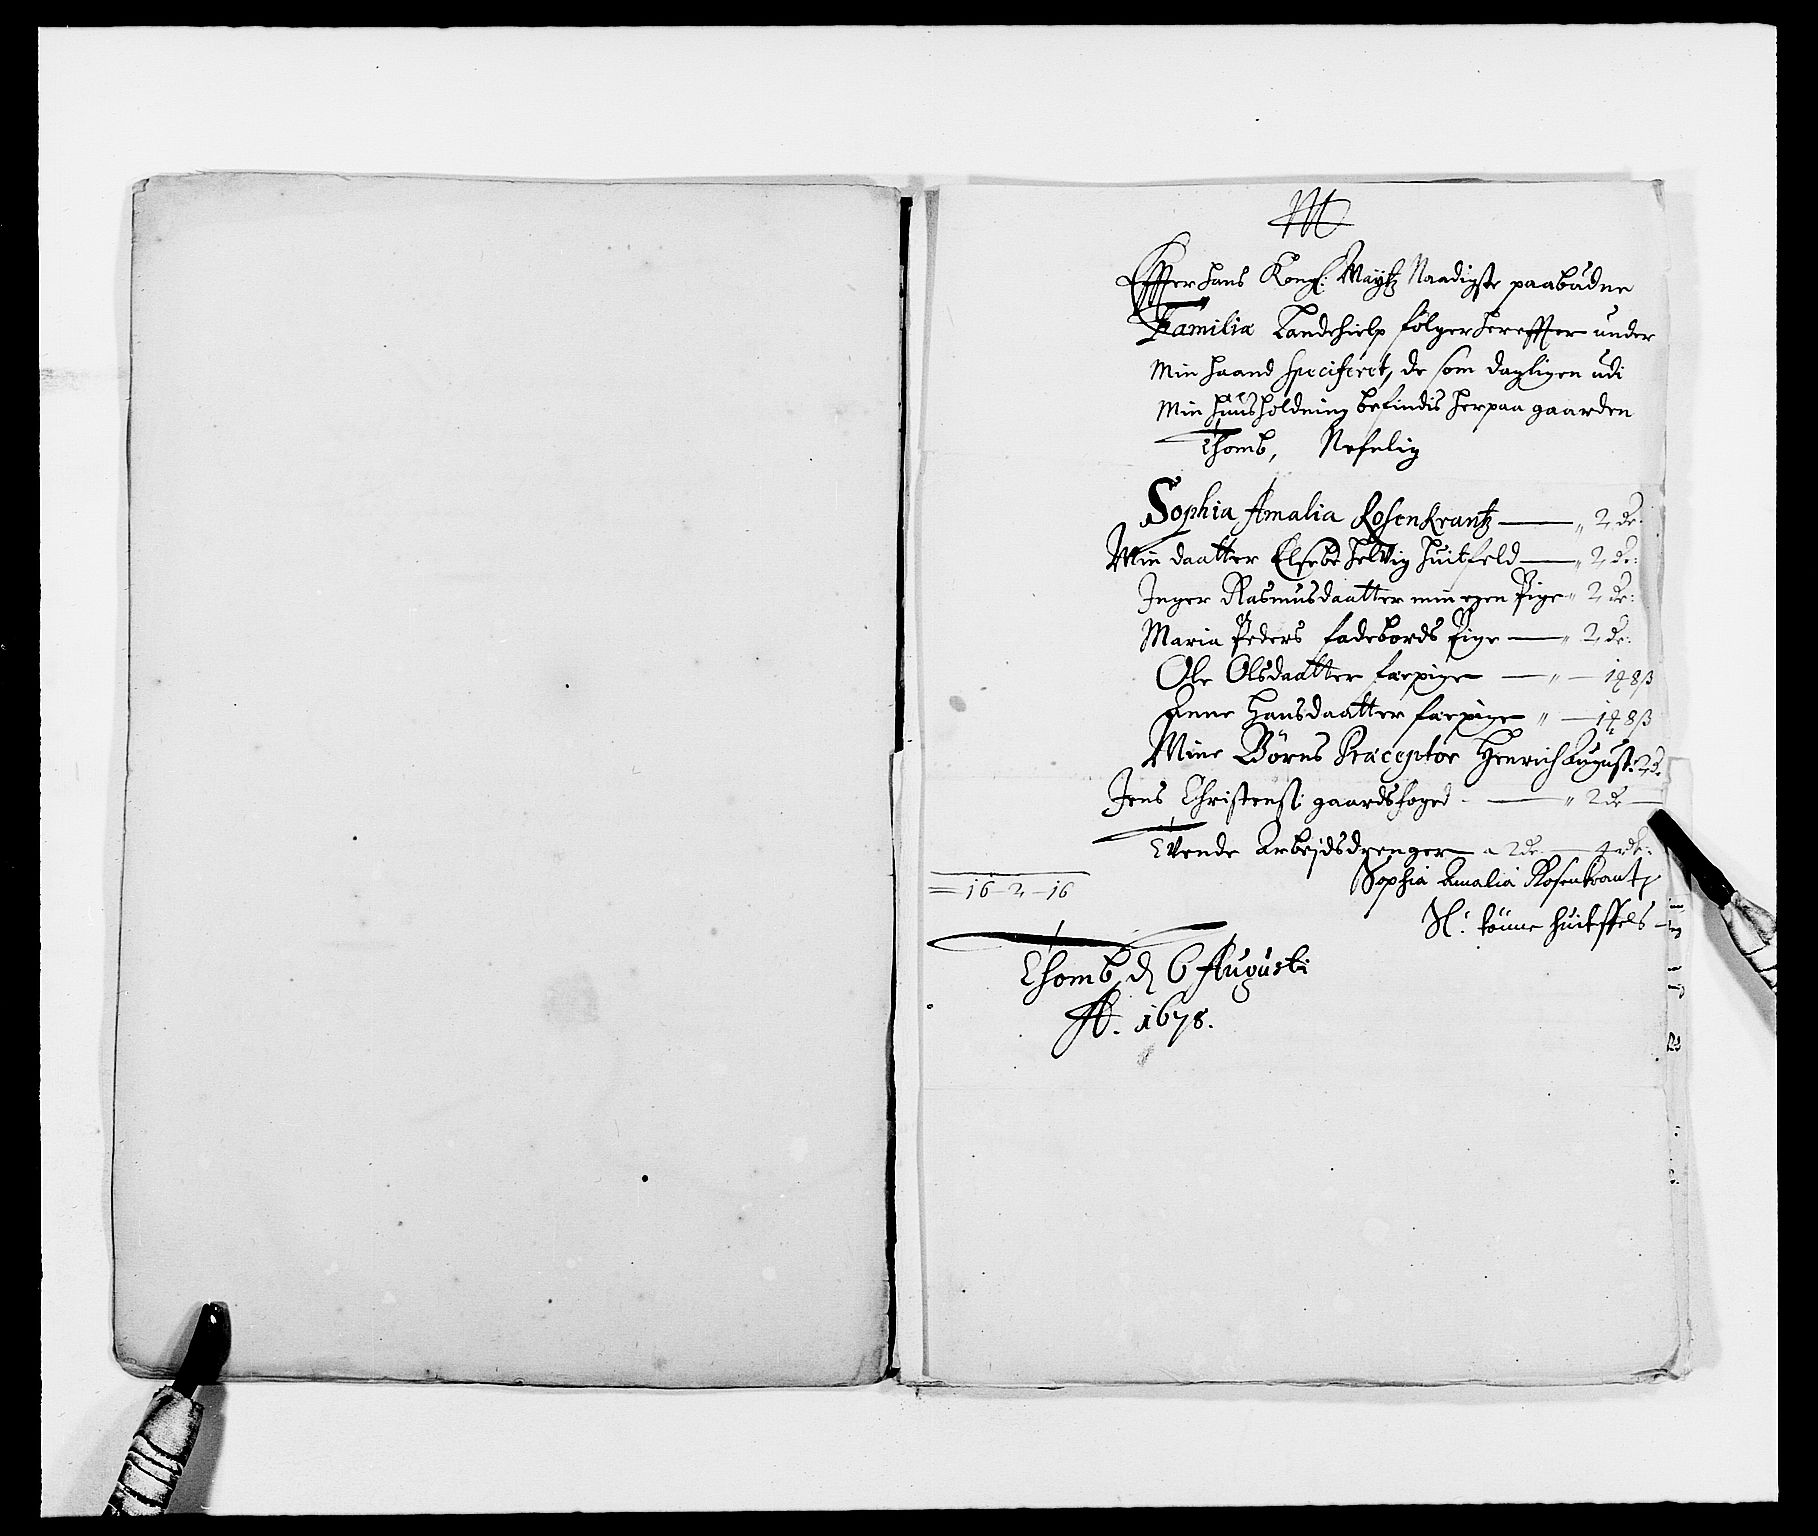 M
Effter hans Kongl: Maytz Naadigste paabudne
Familiæ Landehielp følger hereffter under
Min haand specificeret, de som dagligen udi
Min huusholdning befindis her paa gaarden
Thomb, Nefnlig
Sophia Amalia Rosenkrantz — „ 2 dr:
Min daatter Elsebe Helvig Huitfeld — „ 2 dr:
Inger Rasmusdaatter min egen Pige „ 2 dr:
Maria Peders fadebords Pige — „ 2 dr:
Ole Olsdaatter faepige — „ — 1 ꝶ 8 ß
Anne Hansdaatter faepige „ — 1 ꝶ 8 ß
Mine Børns Præceptor Henrich August: 2 d.
Jens Christens: gaardsfoged — „ 2 dr —
Tvende Arbejdsdrenger a 2 dr. — 4 rdr:
Sophia Amalia Rosenkrantz
= 16 - 2 - 16
Sl: tønne huitffels
Thomb d 6 Augusti
Ao. 1678.